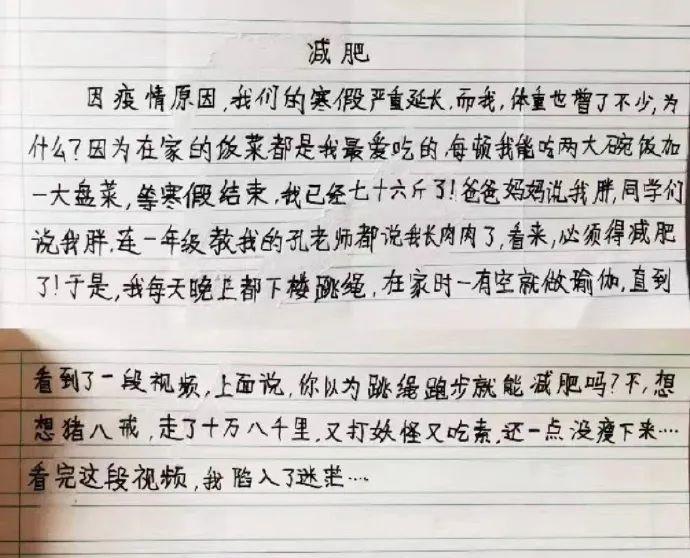 减肥
因疫情原因,我们的寒假严重延长,而我,体重也曾了不少,为
什么?因为在家的饭菜都是我最爱吃的,每顿我能吃两大碗饭加
一大盘菜,等寒假结束,我已经七十六斤了!爸爸妈妈说我胖,同学们
说我胖,连一年级教我的孔老师都说我长肉肉了,看来,必须得减肥
了!于是,我每天晚上都下楼跳绳,在家时一有空就做瑜伽,直到
看到了一段视频,上面说,你以为跳绳跑步就能减肥吗?不,想
想猪八戒,走了十万八千里,又打妖怪又吃素,还一点没瘦下来……
看完这段视频,我陷入了迷茫…